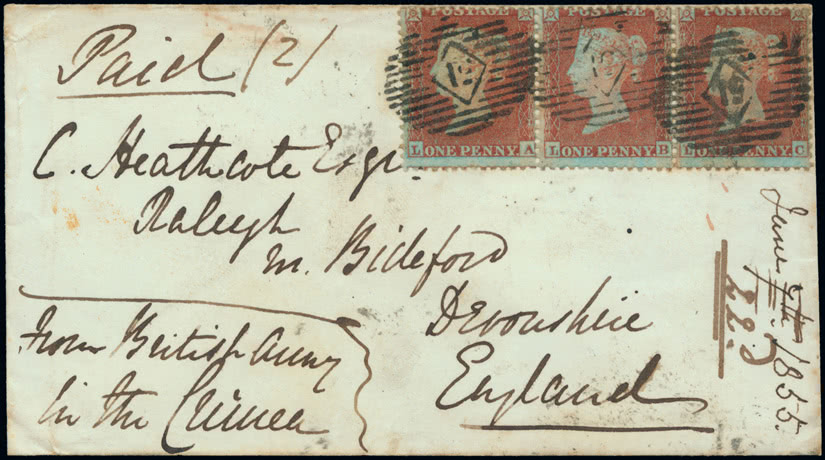 Paid (2)
POSTAGE POSTAGE POSTAGE
L ONE PENNY A L ONE PENNY B L ONE PENNY C
C. Heathcote Esqr.
Raleigh
nr. Bideford
Devonshire
England
from British Army
in the Crimea
June 1855.